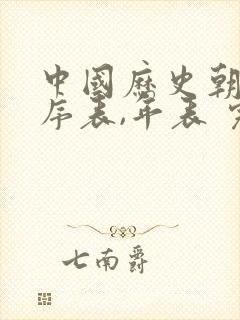 中國歷史朝
序表,年表
七南爵